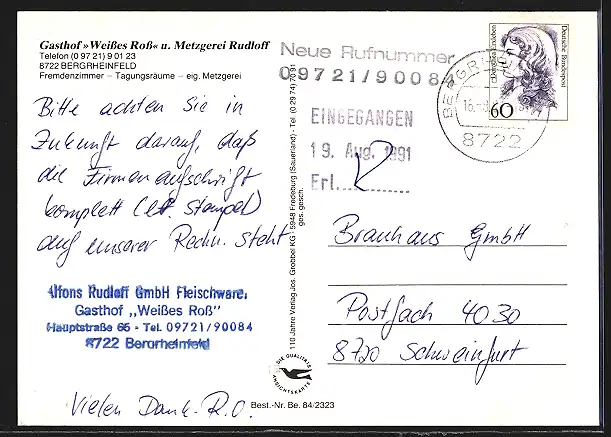 Gasthof »Weißes Roß« u. Metzgerei Rudloff
Telefon (0 97 21) 9 01 23
8722 BERGRHEINFELD
Fremdenzimmer – Tagungsräume – eig. Metzgerei
Neue Rufnummer
09721/90084
EINGEGANGEN
19. Aug. 1991
Erl.............
8722
60
Deutsche Bundespost
Bitte achten Sie in
Zukunft darauf, daß
die Firmenaufschrift
komplett (lt. Stempel)
auf unserer Rechn. steht
Alfons Rudloff GmbH Fleischware.
Gasthof ,,Weißes Roß"
Hauptstraße 65 - Tel. 09721/90084
8722 Bergrheinfeld
Vielen Dank - R.O.
110 Jahre Verlag Jos. Grobbel KG 5948 Fredeburg (Sauerland) - Tel. (0 29 74) 70 91
ges. gesch.
DIE QUALITÄTS
ANSICHTSKARTE
Best.-Nr. Be. 84/2323
Brauhaus GmbH
Postfach 4030
8720 Schweinfurt